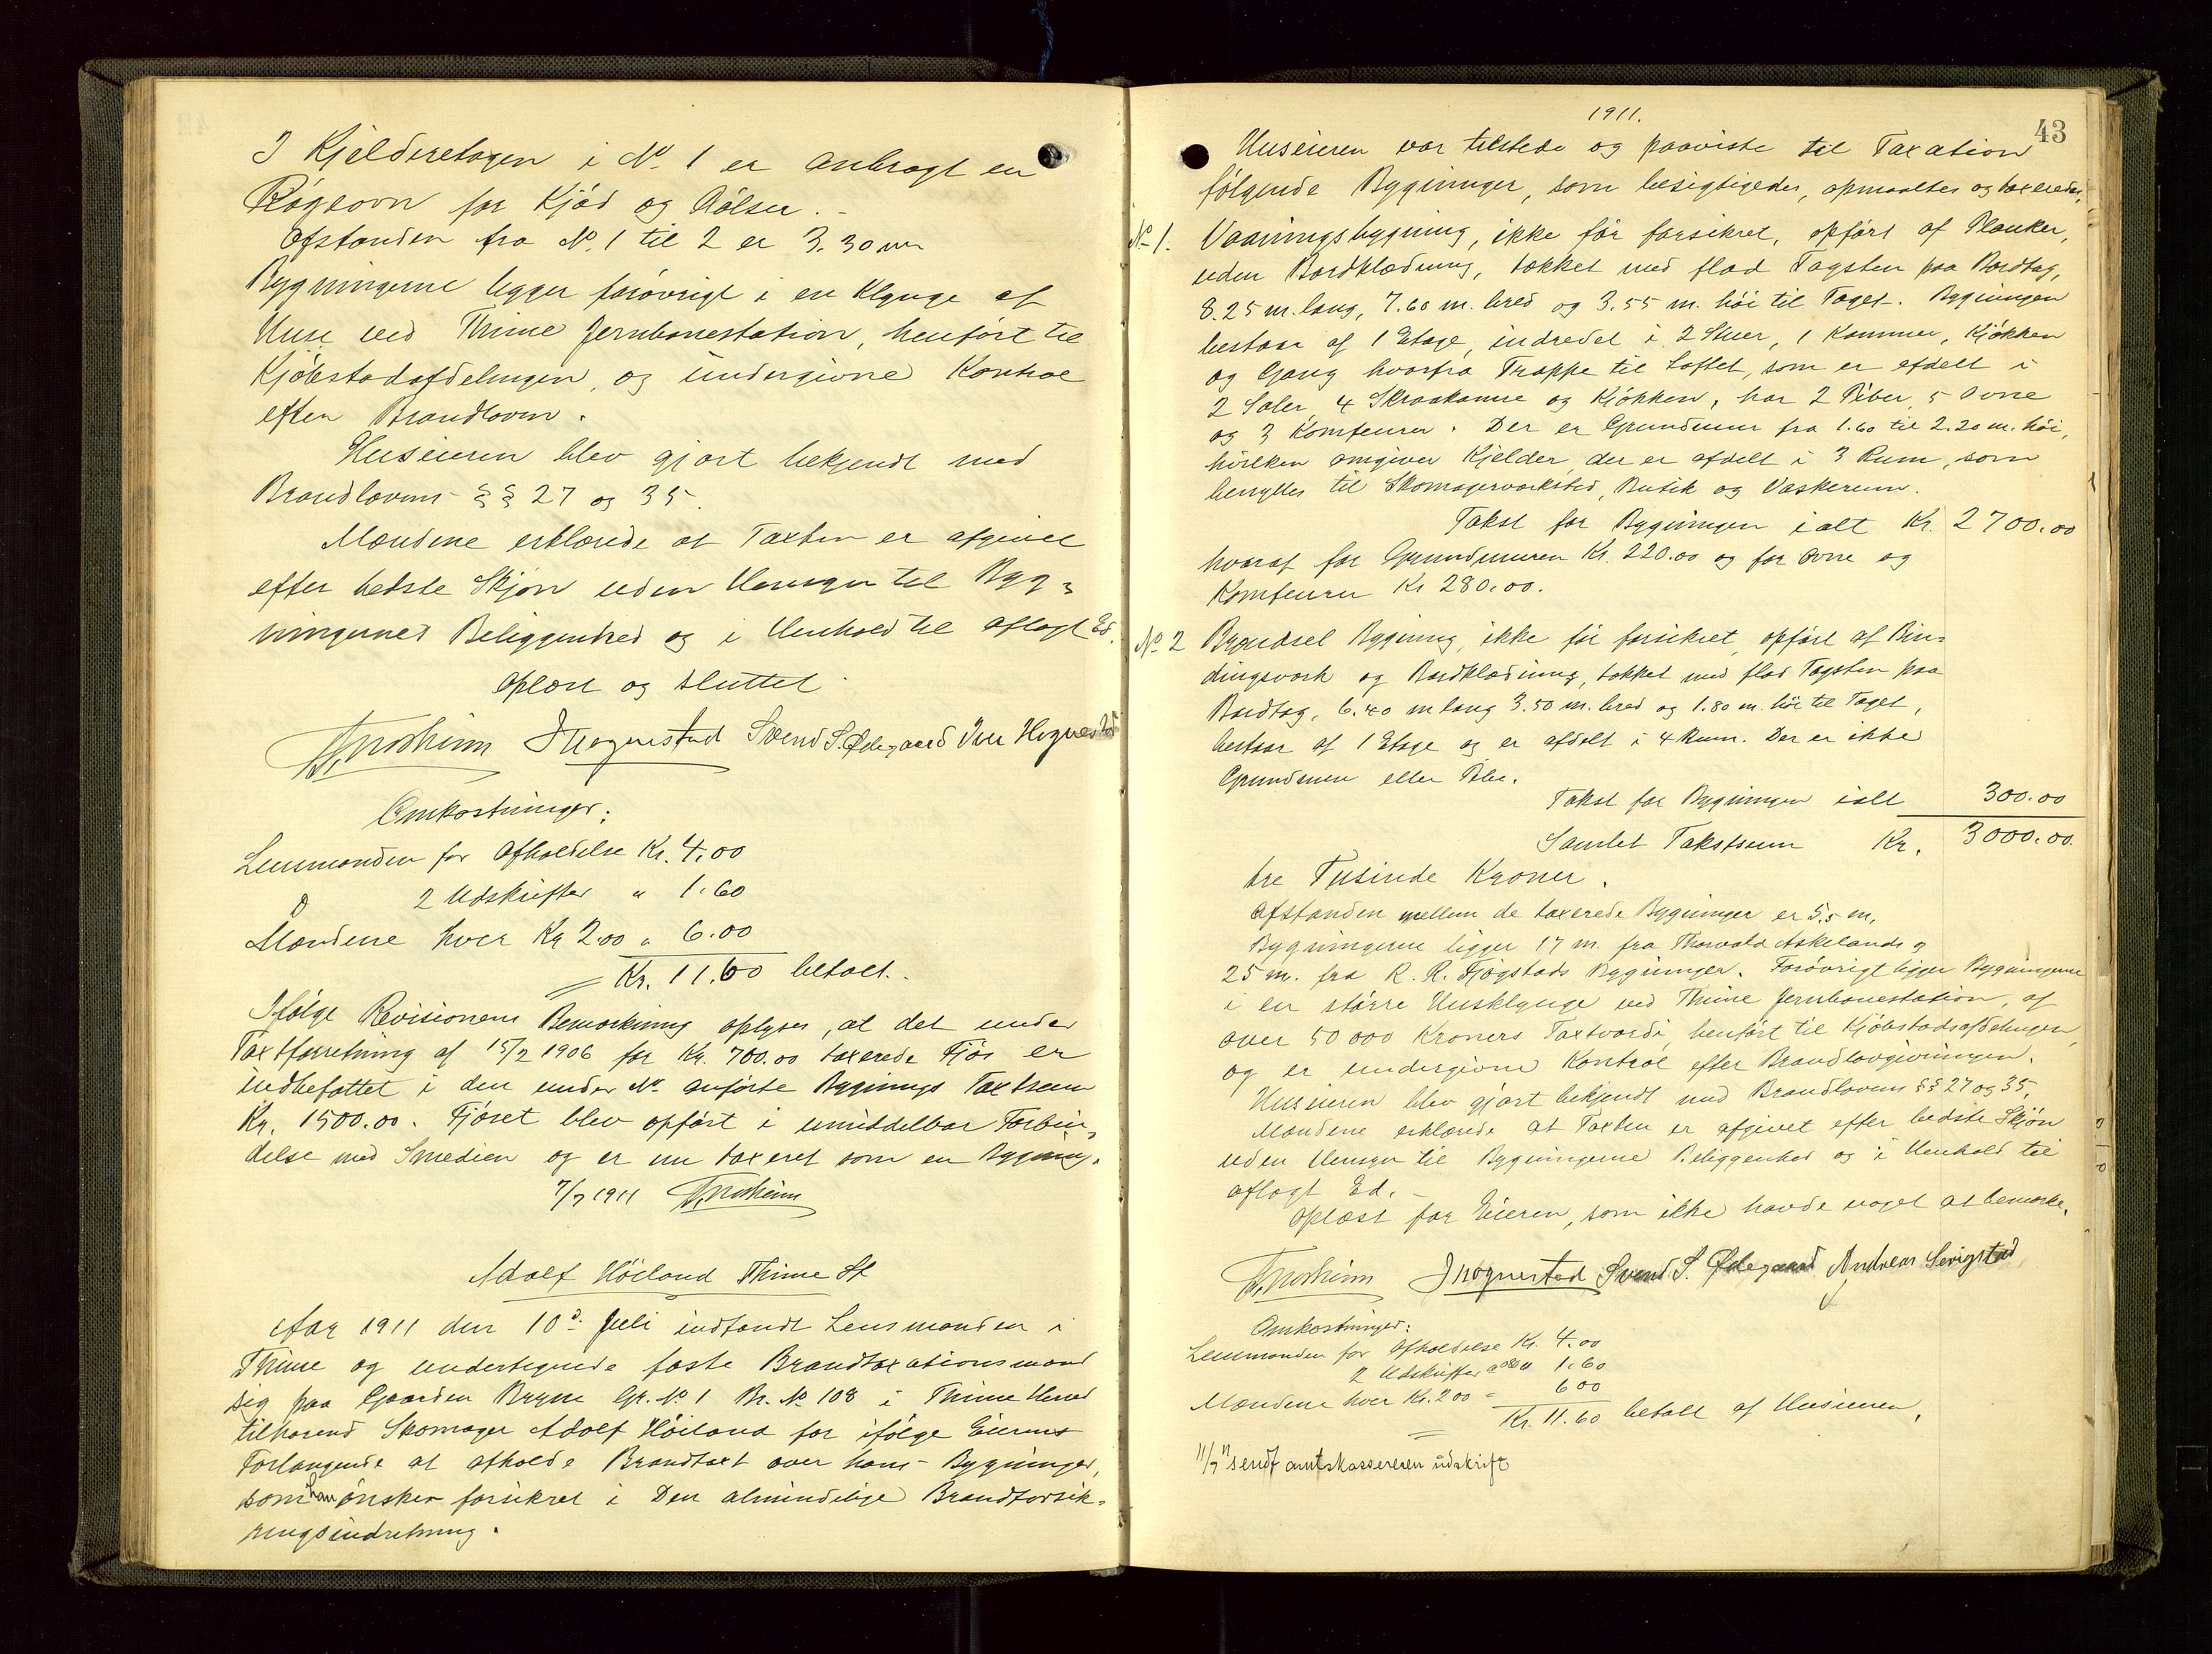 I Kjelderetagen i No. 1 er anbragt en
Røgeovn for Kjød og Pølser. -
Afstanden fra No. 1 til 2 er 3.30 m
Bygningerne ligger forøvrigt i en Klynge af
Huse ved Thime Jernbanestation, henført til
Kjøbstadafdelingen, og undergivne Kontrol
efter Brandloven.
Huseieren blev gjort bekjendt med
Brandlovens §§ 27 og 35.
Mændene erklærede at Taxten er afgivet
efter bedste Skjøn uden Hensyn til Byg=
ningernes Beliggenhed og i Henhold til aflagt Ed.
Oplæst og sluttet.
Thognestad Svend S. Ødegaard Iver Hognestad
Omkostninger:
Lensmanden for Afholdelse Kr. 4.00
2 Udskrifter " 1.60
Mændene hver Kr 2.00 " 6.00
Kr. 11.60 betalt.
Ifølge Revisionens Bemærkning oplyses, at det under
Taxtforretning af 15/2 1906 for Kr. 700.00 taxerede Fjøs er
indbefattet i den under No. anførte Bygnings Taxtsum
Kr. 1500.00. Fjøset blev opført i umiddelbar Forbin=
delse med Smedien og er nu taxeret som en Bygning.
7/7 1911
Adolf Höiland Thime St
Aar 1911 den 10d. Juli indfandt Lensmanden i
Thime og undertegnede faste Brandtaxationsmænd
sig paa Gaarden Bryne Gr. No. 1 Br. No. 108 i Thime Herred
tilhørend Skomager Adolf Höiland for ifølge Eierens
Forlangende at afholde Brandtaxt over hans Bygninger,
som han ønsker forsikret i Den almindelige Brandforsik=
ringsindretning.
1911.
43
Huseieren var tilstede og paaviste til Taxation
følgende Bygninger, som besigtigedes, opmaaltes og taxeredes,
No. 1. Vaaningsbygning, ikke før forsikret, opført af Planker,
uden Bordklædning, tækket med flad Tagsten paa Bordtag,
8.25 m. lang, 7.60 m. bred og 3.55 m. høi til Taget. Bygningen
bestaar af 1 Etage, indredet i 2 Stuer, 1 Kammer, Kjøkken
og Gang hvorfra Trappe til Loftet, som er afdelt i
2 Saler, 4 Skraakamre og Kjøkken, har 2 Piber, 5 Ovne
og 3 Komfeurer. Der er Grundmur fra 1.60 til 2.20 m. høi,
hvilken omgiver Kjelder, der er afdelt i 3 Rum, som
benyttes til Skomagerværksted, Butik og Vaskerum.
Takst for Bygningen ialt Kr. 2700.00
hvoraf for Grundmuren Kr. 220.00 og for Ovne og
Komfeurer Kr 280.00.
No 2 Brændsel Bygning, ikke før forsikret, opført af Bin=
dingsværk og Bordklædning, tækket med flad Tagsten paa
Bordtag, 6.40 m lang 3.50 m. bred og 1.80 m. høi til Taget,
bestaar af 1 Etage og er afdelt i 4 Rum. Der er ikke
Grundmur eller Pibe.
Takst for Bygningen ialt 300.00
Samlet Takstsum Kr. 3000.00.
tre Tusinde Kroner.
Afstanden mellem de taxerede Bygninger er 5.5 m.
Bygningerne ligger 17 m. fra Thorvald Askelands og
25 m. fra R. R. Fjøgstads Bygninger. Forøvrigt ligger Bygningerne
i en større Husklynge ved Thime Jernbanestation, af
over 50 000 Kroners Taxtværdi, henført til Kjøbstadsafdelingen,
og er undergivne Kontrol efter Brandlovgivningen.
Huseieren blev gjort bekjendt med Brandlovens §§ 27 og 35.
Mændene erklærede at Taxten er afgivet efter bedste Skjøn
uden Hensyn til Bygningerne Beliggenhed og i Henhold til
aflagt Ed. -
Oplæst for Eieren, som ikke havde noget at bemærke.
Thognestad Svend S. Ødegaard Andreas Serigstad
Omkostninger:
Lensmanden for Afholdelse Kr. 4.00
2 Udskrifter a 080 " 1.60
Mændene hver Kr. 2.00 = 6.00
Kr. 11.60 betalt af Huseieren.
11/7 11 sendt amtskassereren udskrift